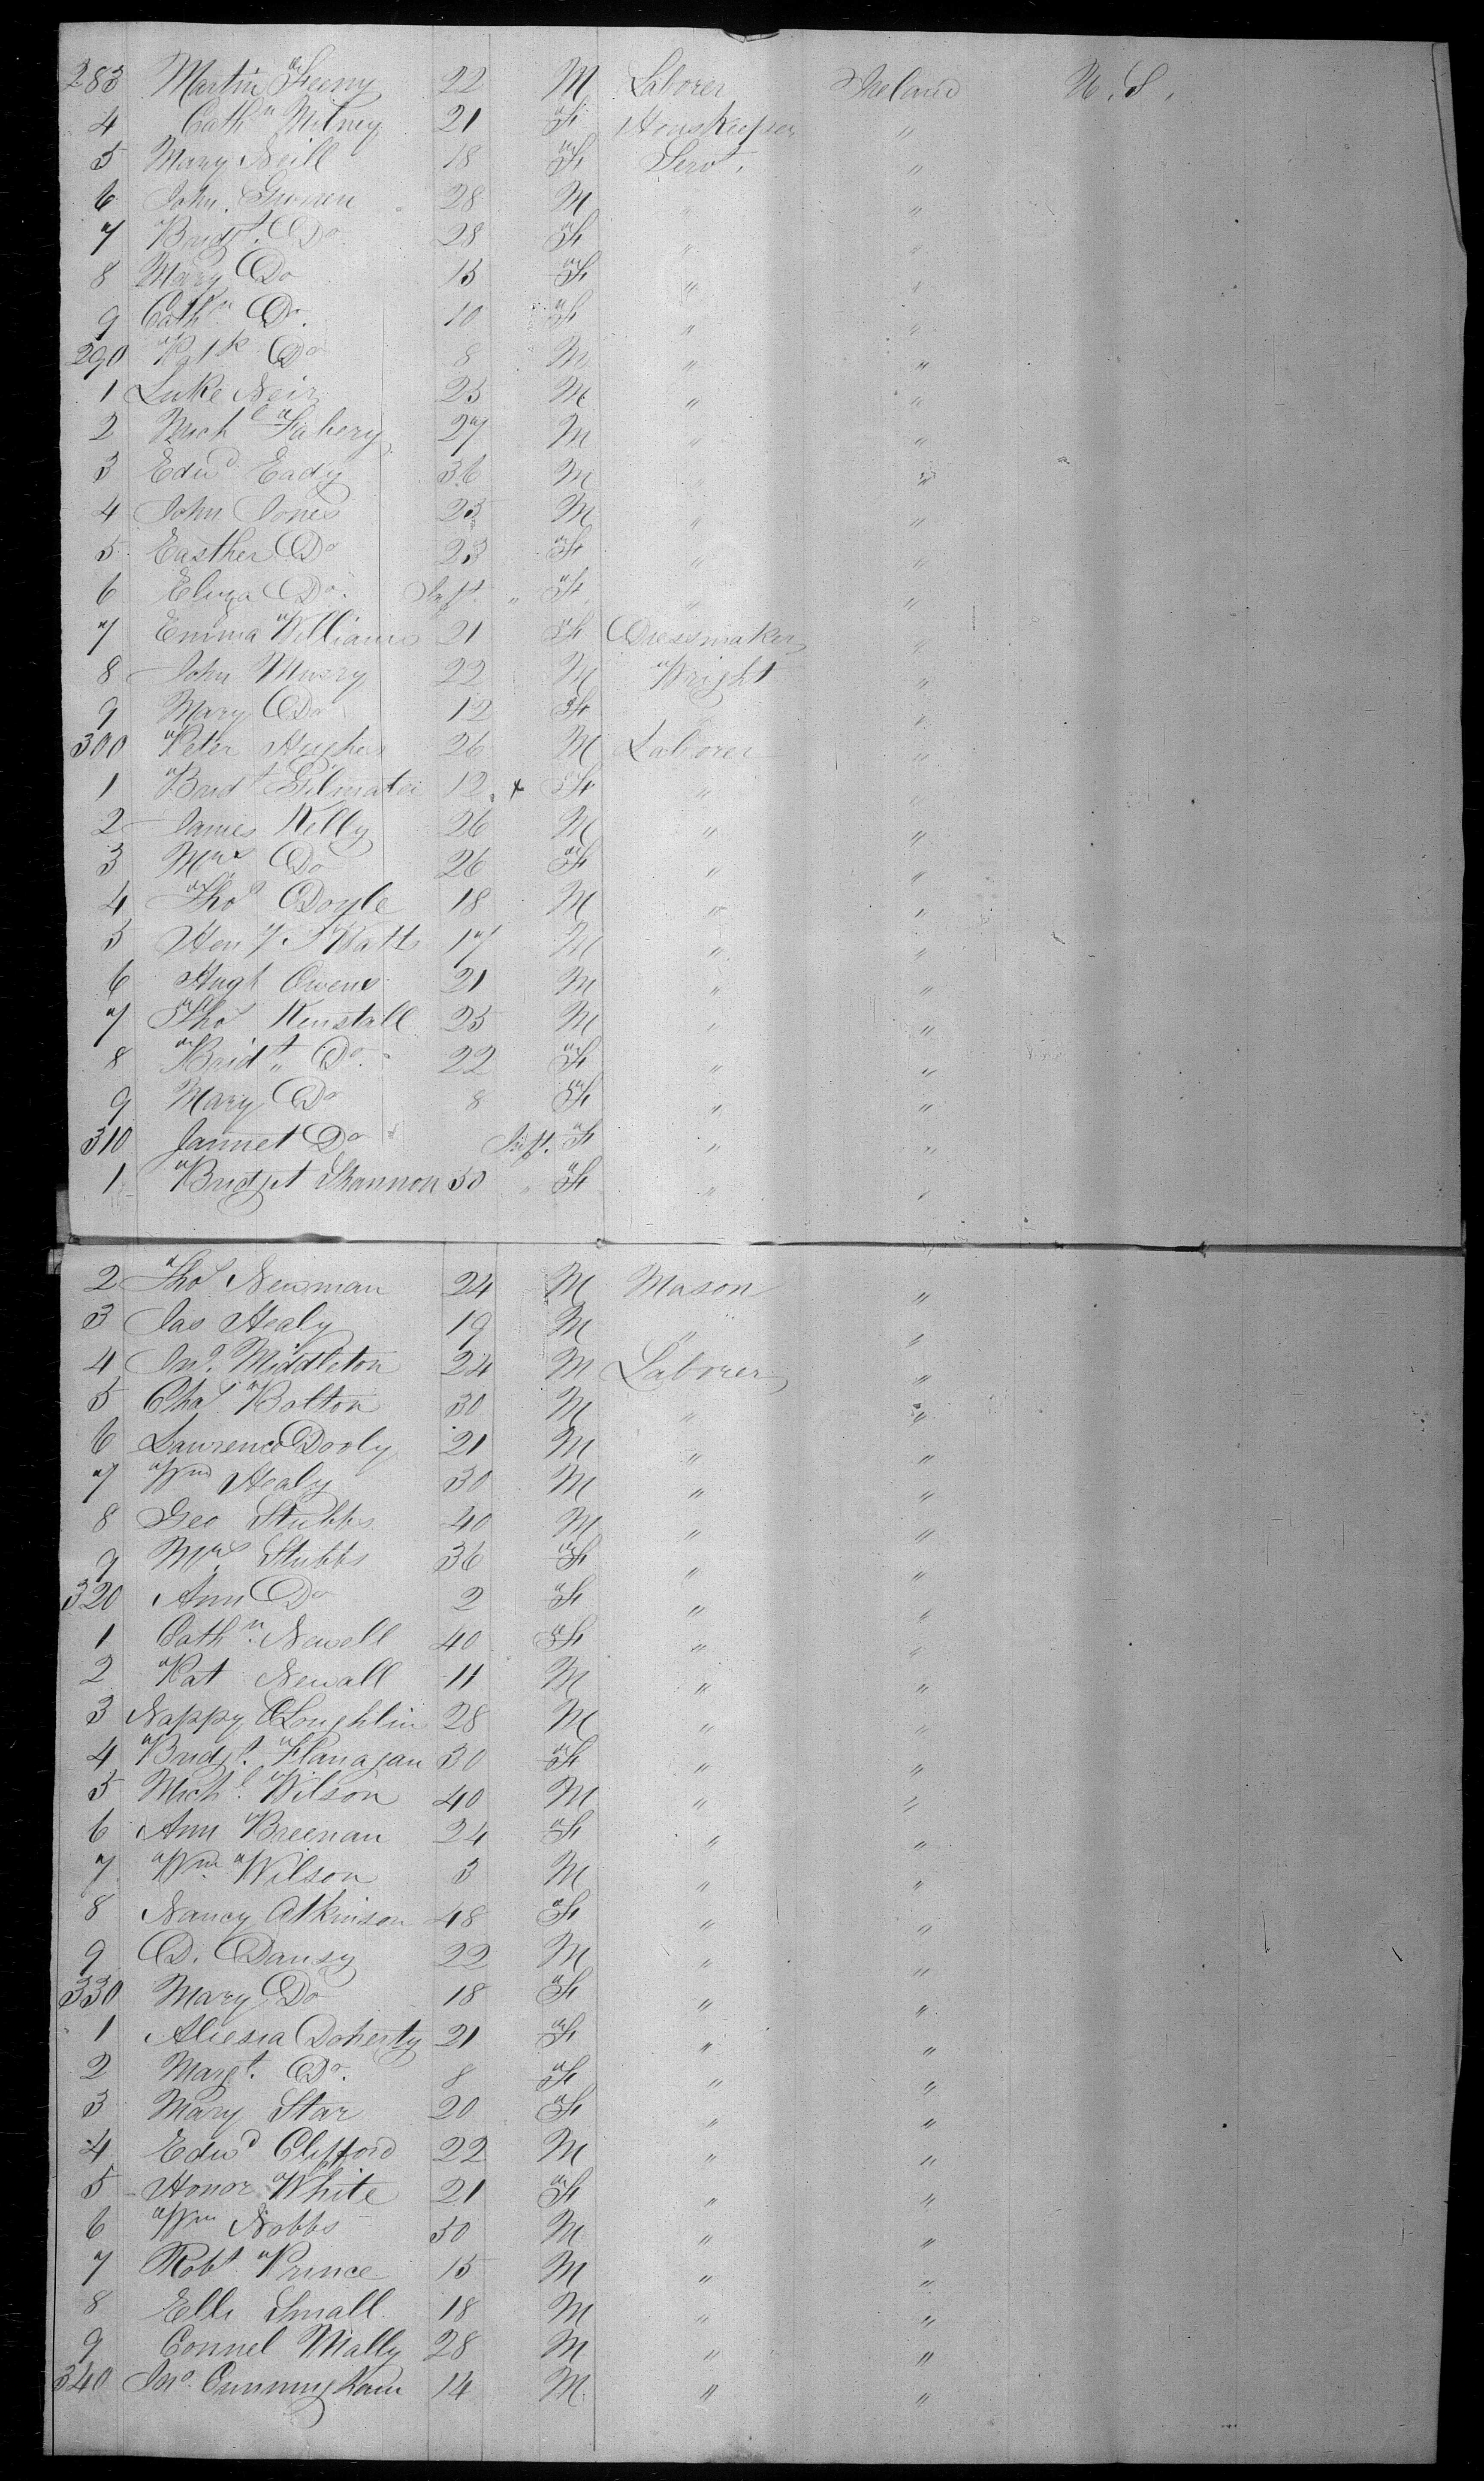 283 Martin Feeny 22 M Laborer Ireland U.S.
4 Cathn Milney 21 F Houskeeper "
5 Mary Neill 18 F Servt. "
6 John 28 M " "
7 Bridgt. Do 28 F " "
8 Mary Do 15 F " "
9 Cathn Do. 10 F " "
290 Patk Do 8 M " "
1 Luke Neir 25 M " "
2 Michl Fahery 27 M " "
3 Edwd Eady 36 M " "
4 John Jones 25 M " "
5 Easther Do 23 F " "
6 Eliza Do. Inft. " F " "
7 Emma Williams 21 F Dressmaker "
8 John Musry 22 M Wright "
9 Mary Do 12 F "
300 Peter Hughes 26 M Laborer "
1 Bridt 12 x F " "
2 James Kelly 26 M " "
3 Mrs Do 26 F " "
4 Thos Doyle 18 M " "
5 Heny Watts 17 M " "
6 Hugh Owens 21 M " "
7 Thos Kenstall 25 M " "
8 Bridt. Do. 22 F " "
9 Mary Do 8 F " "
310 Jannet Do Inft. F " "
1 Bridget Shannon 50 " F " "
2 Thos Newman 24 M Mason "
3 Jas Healy 19 M " "
4 Jno. Middleton 24 M Laborer "
5 Chas Bolton 30 M " "
6 Lawrence Dooly 21 M " "
7 Wm Healy 30 M " "
8 Geo Stubbs 40 M " "
9 Mrs Stubbs 36 F " "
320 Ann Do 2 F " "
1 Cathn. Newell 40 F " "
2 Pat Newall 11 M " "
3 Nappy OLoughlin 28 M " "
4 Bridgt. Flanagan 30 F " "
5 Michl. Wilson 40 M " "
6 Ann Breenan 24 F " "
7 Wm. Wilson 3 M " "
8 Nancy Atkinson 48 F " "
9 D. Dansy 22 M " "
330 Mary Do 18 F " "
1 Aliesia Doherty 21 F " "
2 Margt. Do. 8 F " "
3 Mary Star 20 F " "
4 Edwd Clifford 22 M " "
5 Honor White 21 F " "
6 Wm Nobbs 50 M " "
7 Robt Prince 15 M " "
8 Elli Small 18 M " "
9 Connel Mally 28 M " "
340 Jno. Cunningham 14 M " "